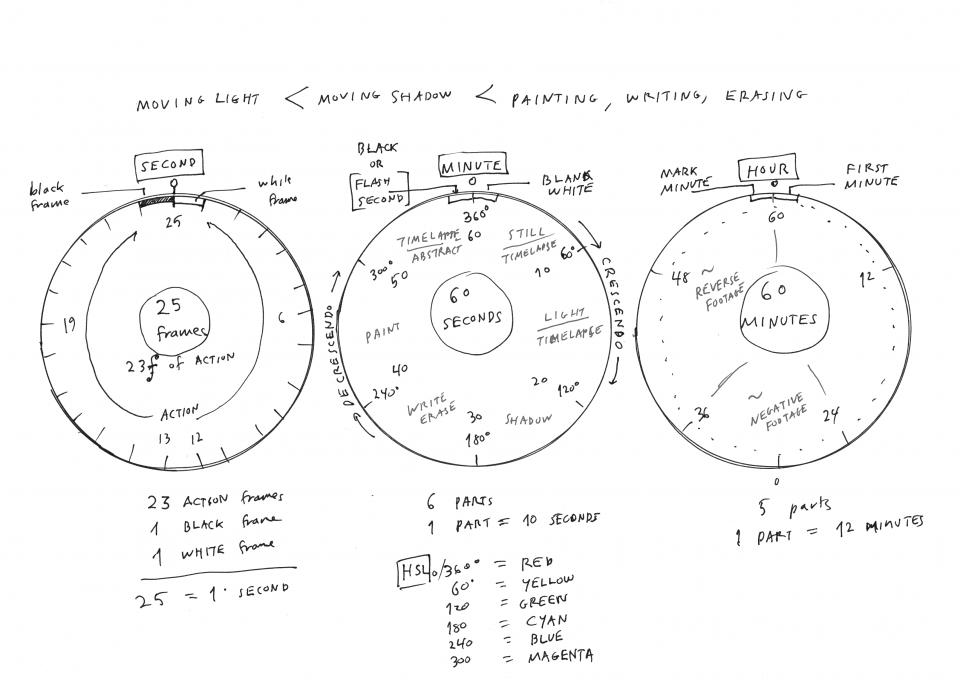 MOVING LIGHT < MOVING SHADOW < PAINTING, WRITING, ERASING
SECOND
0
black
frame
white
frame
25
19
6
25
frames
23f of ACTION
ACTION
13 12
BLACK
OR
FLASH
SECOND
MINUTE
0
BLANK
WHITE
360°
60
TIMELAPSE
ABSTRACT
STILL
TIMELAPSE
300°
50
60°
10
60
SECONDS
PAINT
LIGHT
TIMELAPSE
40
240°
20
120°
WRITE
ERASE
30
180°
SHADOW
DECRESCENDO
CRESCENDO
MARK
MINUTE
HOUR
0
FIRST
MINUTE
60
48
12
~
REVERSE
FOOTAGE
60
MINUTES
36
24
~
NEGATIVE
FOOTAGE
0
23 ACTION frames
1 BLACK frame
1 WHITE frame
25 = 1. SECOND
6 PARTS
1 PART = 10 SECONDS
HSL 0/360° = RED
60° = YELLOW
120 = GREEN
180 = CYAN
240 = BLUE
300 = MAGENTA
5 parts
1 PART = 12 MINUTES